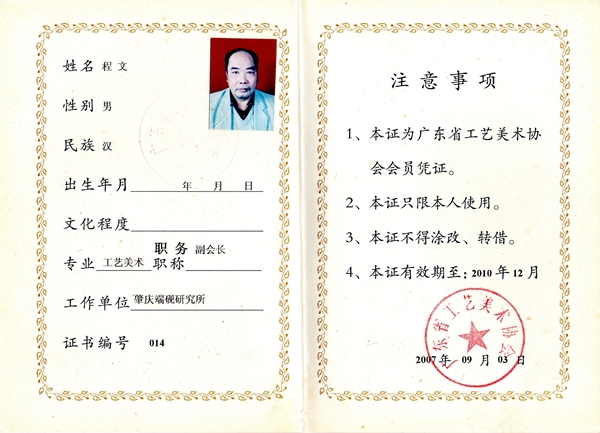 姓名 程文
性别 男
民族 汉
出生年月 年 月 日
文化程度
职务 副会长
专业 工艺美术 职称
工作单位 肇庆端砚研究所
证书编号 014
注意事项
1、本证为广东省工艺美术协
会会员凭证。
2、本证只限本人使用。
3、本证不得涂改、转借。
4、本证有效期至：2010年12月
广东省工艺美术协会
2007年 09月03日